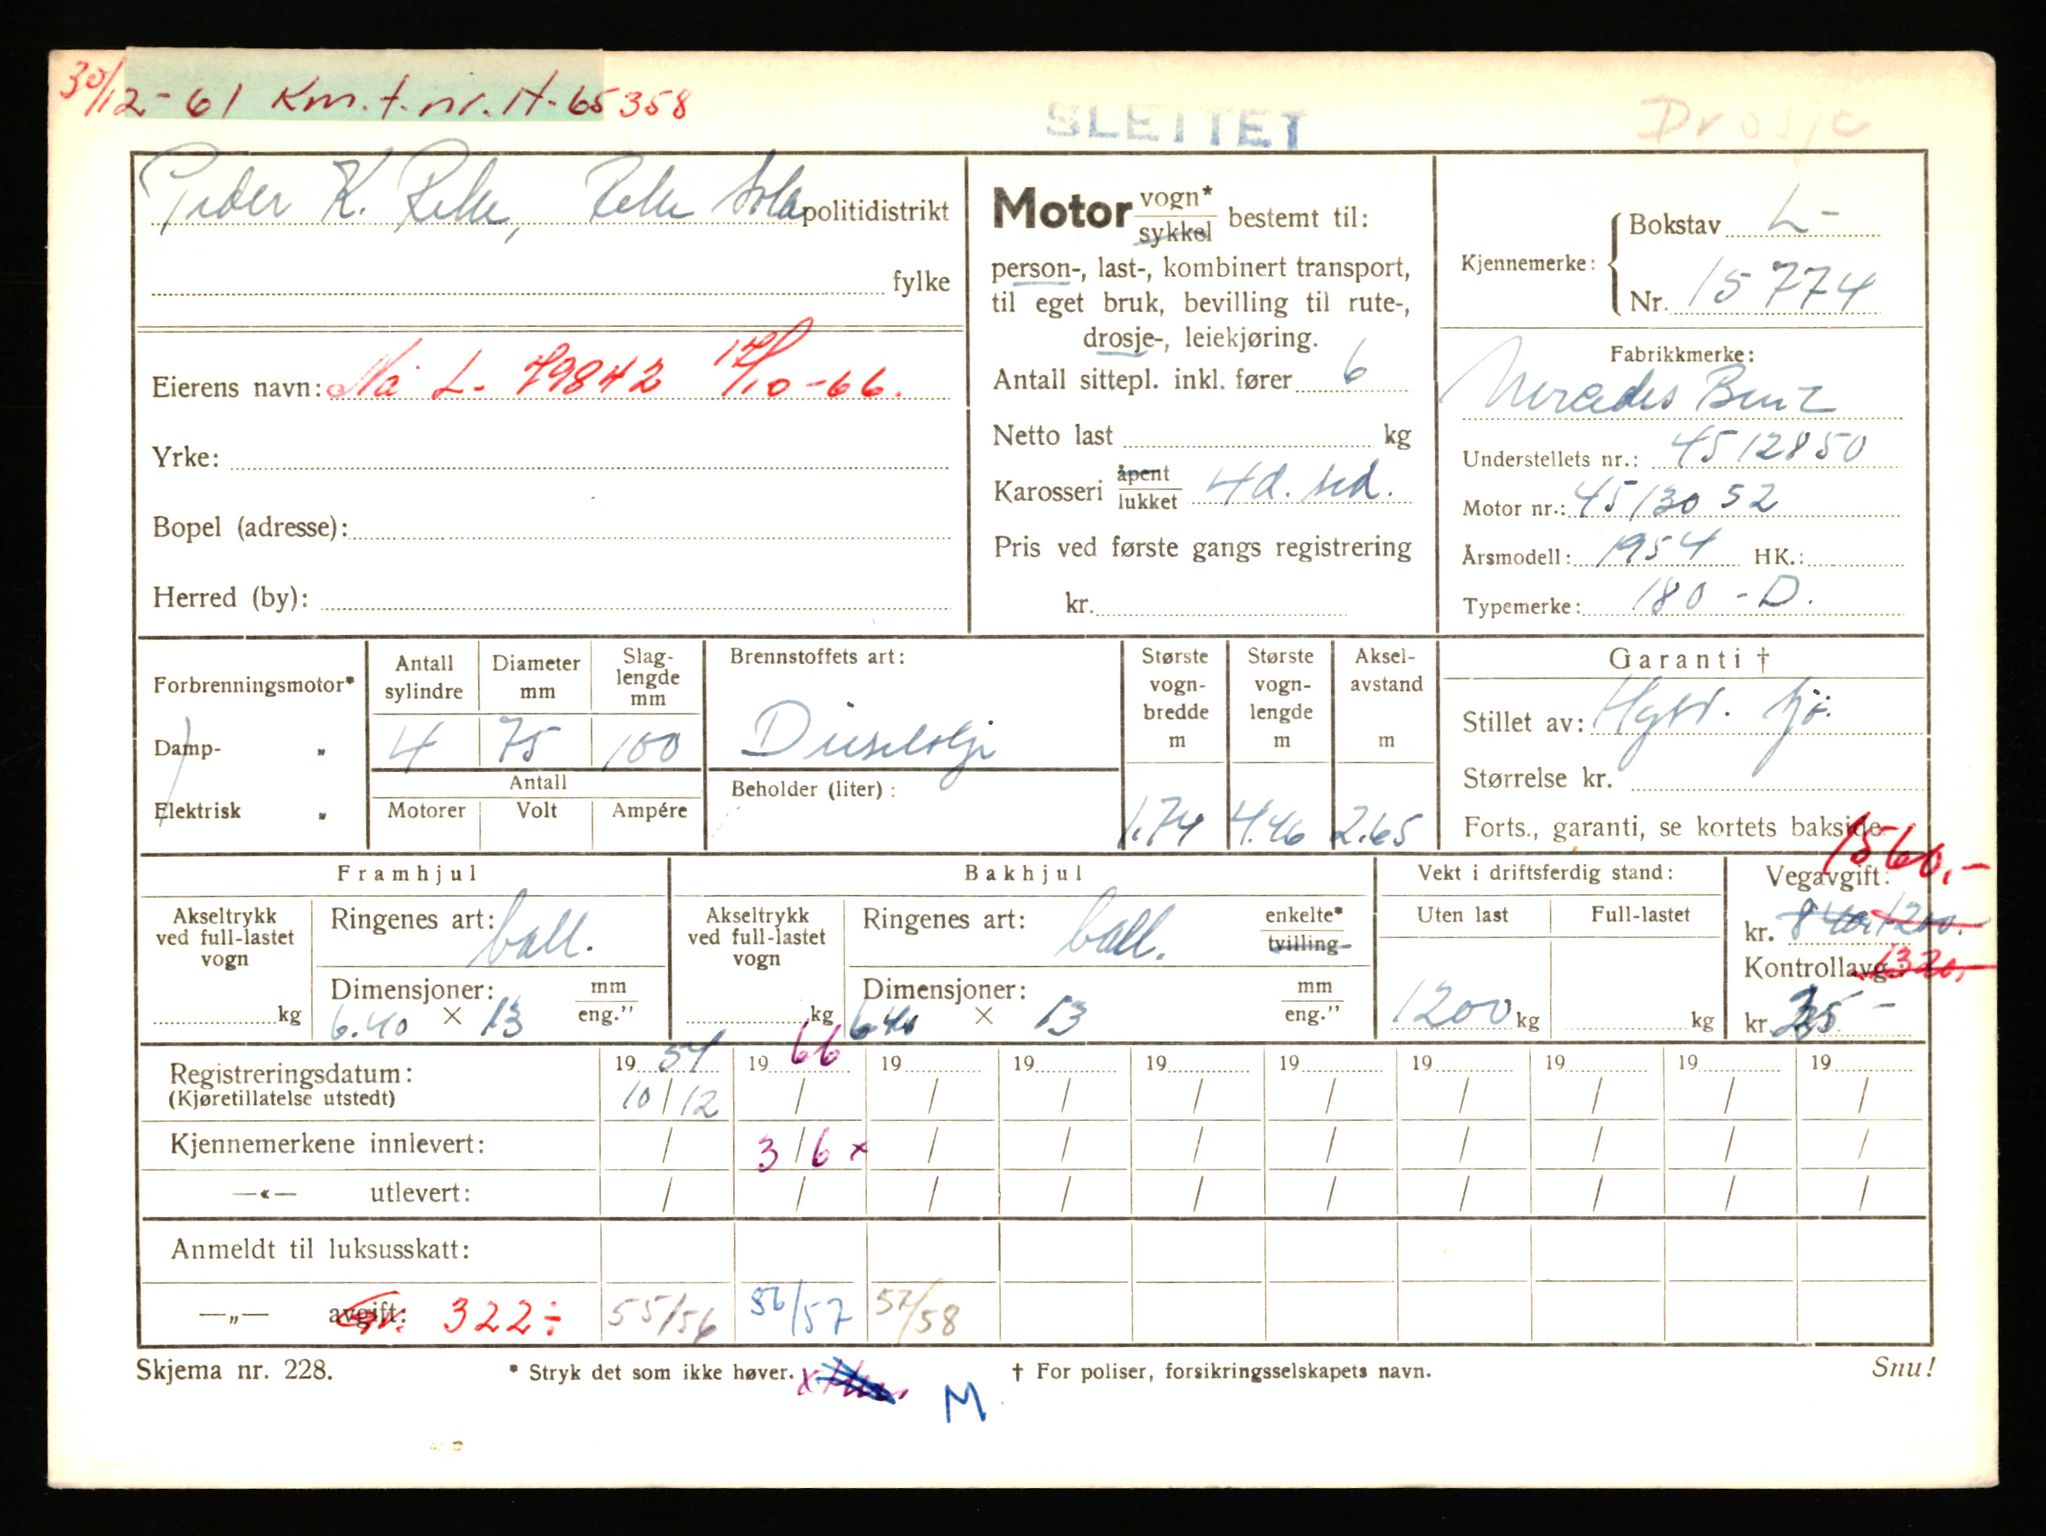 30/12-61 Km.t.nr. H-65358
SLETTET
Drosje
Peder K. Reke, Reke Sola politidistrikt
fylke
Eierens navn: Nå L- 79842 17/10-66.
Yrke:
Bopel (adresse):
Herred (by):
Motor vogn* sykkel bestemt til:
person-, last-, kombinert transport,
til eget bruk, bevilling til rute-,
drosje-, leiekjøring.
Antall sittepl. inkl. fører 6
Netto last kg
Karosseri åpent lukket 4 d. sed.
Pris ved første gangs registrering
kr.
Kjennemerke: Bokstav L-
Nr. 15774
Fabrikkmerke:
Mercedes Benz
Understellets nr.: 4512850
Motor nr.: 4513052
Årsmodell: 1954 HK.:
Typemerke: 180-D.
Forbrenningsmotor*
Damp- „
Elektrisk „
Antall sylindre 4
Diameter mm 75
Slag-lengde mm 100
Antall
Motorer Volt Ampére
Brennstoffets art:
Dieselolje
Beholder (liter):
Største vogn-bredde m 1.74
Største vogn-lengde m 4.46
Aksel-avstand m 2.65
Garanti †
Stillet av:
Størrelse kr.
Forts., garanti, se kortets bakside.
Framhjul
Akseltrykk ved full-lastet vogn
kg
Ringenes art: ball.
Dimensjoner: mm eng."
6.40 × 13
Bakhjul
Akseltrykk ved full-lastet vogn
kg
Ringenes art: ball. enkelte* tvilling
Dimensjoner: mm eng."
6.40 × 13
Vekt i driftsferdig stand:
Uten last Full-lastet
1200 kg kg
1560,-
Vegavgift:
kr. 840,- 1200.-
Kontrollavg.: 1320,-
kr. 35-
Registreringsdatum: 19 54 19 66 19 19 19 19 19 19 19 19
(Kjøretillatelse utstedt) 10/12 / / / / / / / / /
Kjennemerkene innlevert: / 3/6 x / / / / / / / /
—«— utlevert: / / / / / / / / / /
Anmeldt til luksusskatt:
—„— avgift: 322÷ 55/56 56/57 57/58
Skjema nr. 228.
* Stryk det som ikke høver.
† For poliser, forsikringsselskapets navn.
Snu!
M.